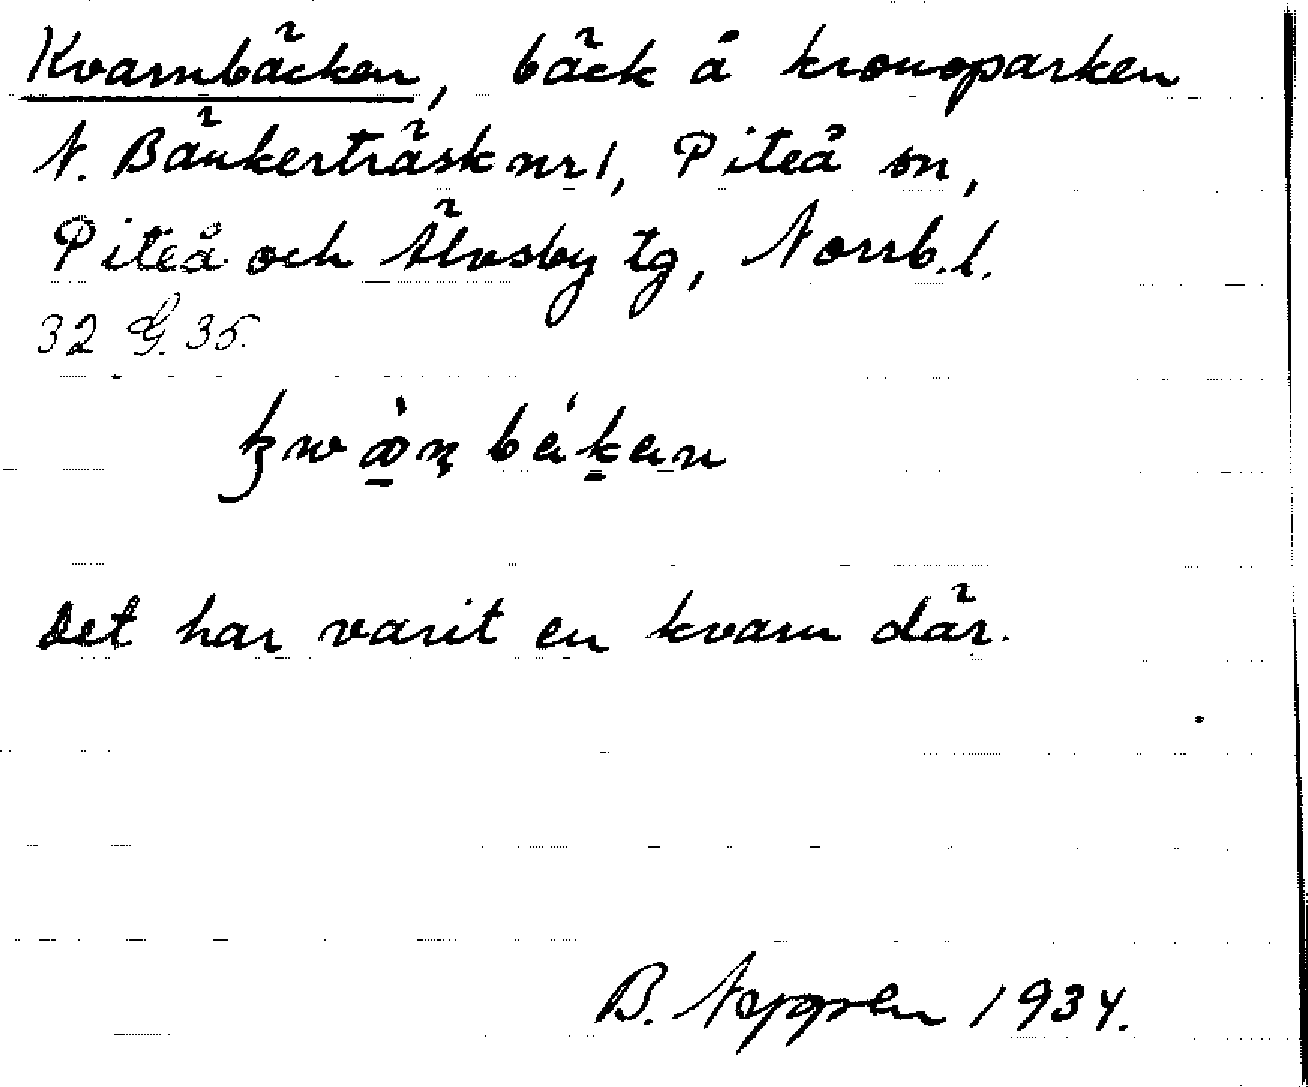 Kvarnbäcken, bäck å kronoparken
N. Bänkerträsk nr 1, Piteå sn,
Piteå och Älvsby tg, Norrb.l.
32 G. 35.
Det har varit en kvarn där.
B. Noppen 1934.